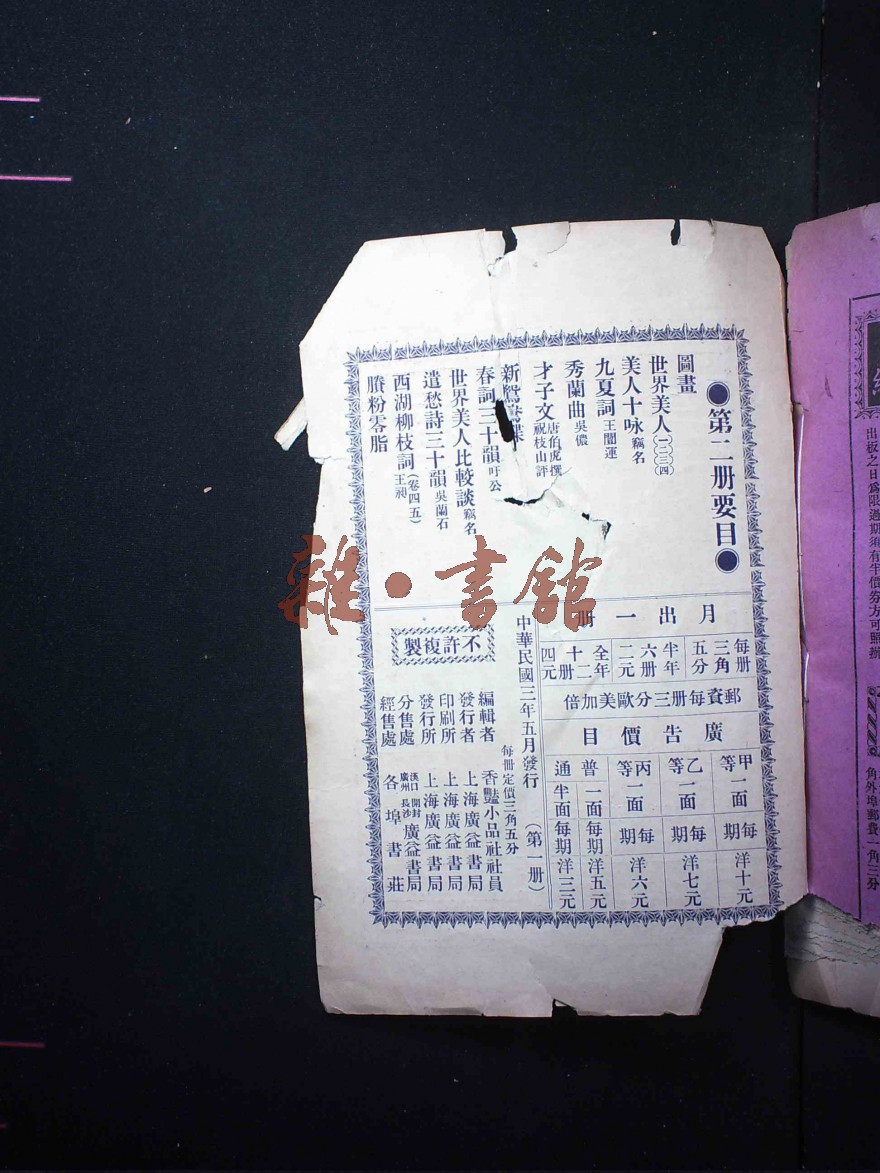 ●第二册要目●
圖畫
世界美人(一)(二)(三)(四)
美人十咏 竊名
九夏詞 王闓運
秀蘭曲 吳儂
才子文 唐伯虎撰 祝枝山評
新鴛鴦牒
春詞三十韻 吁公
世界美人比較談 竊名
遣愁詩三十韻 吳蘭石
西湖柳枝詞 王昶 (卷四五)
賸粉零脂
月出一册
每册三角五分
半年六册二元
全年十二册四元
郵資每册三分歐美加倍
廣告價目
甲等 一面 每期 洋十元
乙等 一面 每期 洋七元
丙等 一面 每期 洋六元
普通 一面 每期 洋五元
半面 每期 洋三元
中華民國三年五月發行 (第一册)
每冊定價三角五分
不許複製
編輯者 香豔小品社社員
發行者 上海廣益書局
印刷所 上海廣益書局
發行所 上海廣益書局
分售處 漢口 開封 廣州 長沙 廣益書局
經售處 各埠書莊
雜·書館
出板之日為限過期須有半價券方可照辦
角外埠郵費一角三分